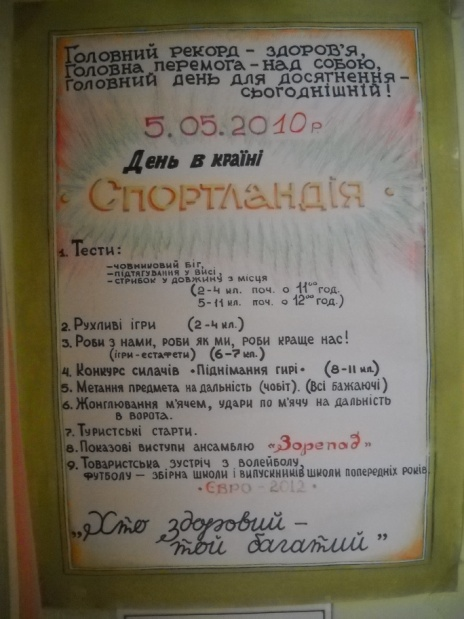 Головний рекорд – здоров'я,
Головна перемога – над собою,
Головний день для досягнення –
сьогоднішній!
5.05.2010 р
День в країні
Спортландія
1. Тести:
– човниковий біг,
– підтягування у висі,
– стрибок у довжину з місця
(2-4 кл. поч. о 11⁰⁰ год.
5-11 кл. поч. о 12⁰⁰ год.)
2. Рухливі ігри (2-4 кл.)
3. Роби з нами, роби як ми, роби краще нас!
(ігри-естафети) (6-7 кл.)
4. Конкурс силачів "Піднімання гирі" (8-11 кл.)
5. Метання предмета на дальність (чобіт). (Всі бажаючі)
6. Жонглювання м'ячем, удари по м'ячу на дальність
в ворота.
7. Туристські старти.
8. Показові виступи ансамблю "Зорепад"
9. Товариська зустріч з волейболу,
футболу – збірна школи і випускників школи попередніх років
· Євро – 2012 ·
„Хто здоровий –
той багатий"